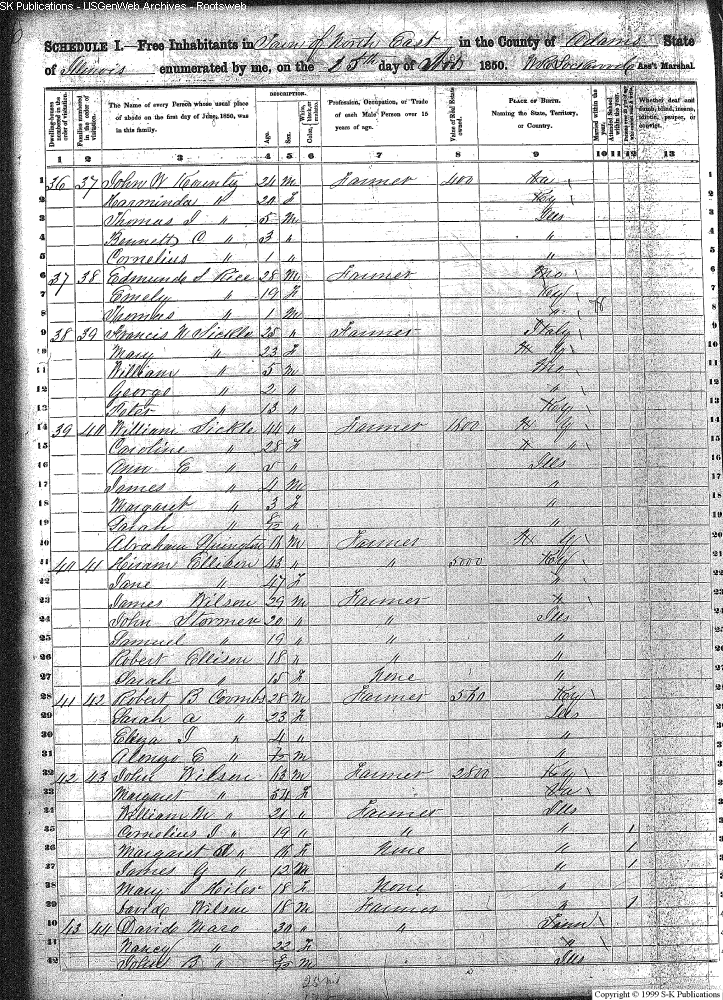 SK Publications - USGenWeb Archives - Rootsweb
SCHEDULE I.—Free Inhabitants in Town of North East in the County of Adams State
of Illinois enumerated by me, on the 25th day of 1850. Ass't Marshal.
Dwelling-houses numbered in the order of visitation.
Families numbered in the order of visitation.
The Name of every Person whose usual place of abode on the first day of June, 1850, was in this family.
DESCRIPTION.
Age.
Sex.
Color, White, black, or mulatto.
Profession, Occupation, or Trade of each Male Person over 15 years of age.
Value of Real Estate owned.
PLACE OF BIRTH. Naming the State, Territory, or Country.
Married within the year.
Attended School within the year.
Whether deaf and dumb, blind, insane, idiotic, pauper, or convict.
1 2 3 4 5 6 7 8 9 10 11 12 13
1 36 37 John W 24 M Farmer 400 1
2 " 20 F Ky 2
3 Thomas J " 5 M Ills 3
4 Bennett C " 3 " " 4
5 Cornelius " 1 " " 5
6 37 38 Edmund S Rice 28 M Farmer Mo 6
7 Emely " 19 F Ky 7
8 Thomas " 1 M 8
9 38 39 Francis M Sickle 25 " Farmer Italy 9
10 Mary " 23 F 10
11 William " 5 M Mo 11
12 George " 2 " " 12
13 Peter " 13 " Ky 13
14 39 40 William Sickle 44 " Farmer 14
15 Caroline " 28 F 15
16 Ann E " " Ills 16
17 James " 4 M " 17
18 Margaret " 3 F " 18
19 Sarah " " " 19
20 Abraham 18 M Farmer 20
21 40 41 Hiram Ellison 43 " " 5000 Ky 21
22 Jane " 47 F " 22
23 James Wilson 39 M Farmer 23
24 John Stormer 20 " " Ills 24
25 Samuel " 19 " " " 25
26 Robert Ellison 18 " " " 26
27 Sarah " 15 F None " 27
28 41 42 Robert B Coombs 28 M Farmer Ky 28
29 Sarah A " 23 F Ills 29
30 Eliza J " 4 " " 30
31 Alonzo E " M " 31
32 42 43 John Wilson 63 M Farmer 2800 Ky 32
33 Margaret " 54 F 33
34 William M " 21 " Farmer Ills 34
35 Cornelius J " 19 " " " 1 35
36 Margaret " 16 F None " 1 36
37 James G " 12 M " 1 37
38 Mary J 18 F None " 38
39 David Wilson 18 M Farmer " 1 39
40 43 44 David 30 " " Tenn 40
41 Nancy " 22 F " 41
42 John B " M Ills 42
Copyright © 1999 S-K Publications